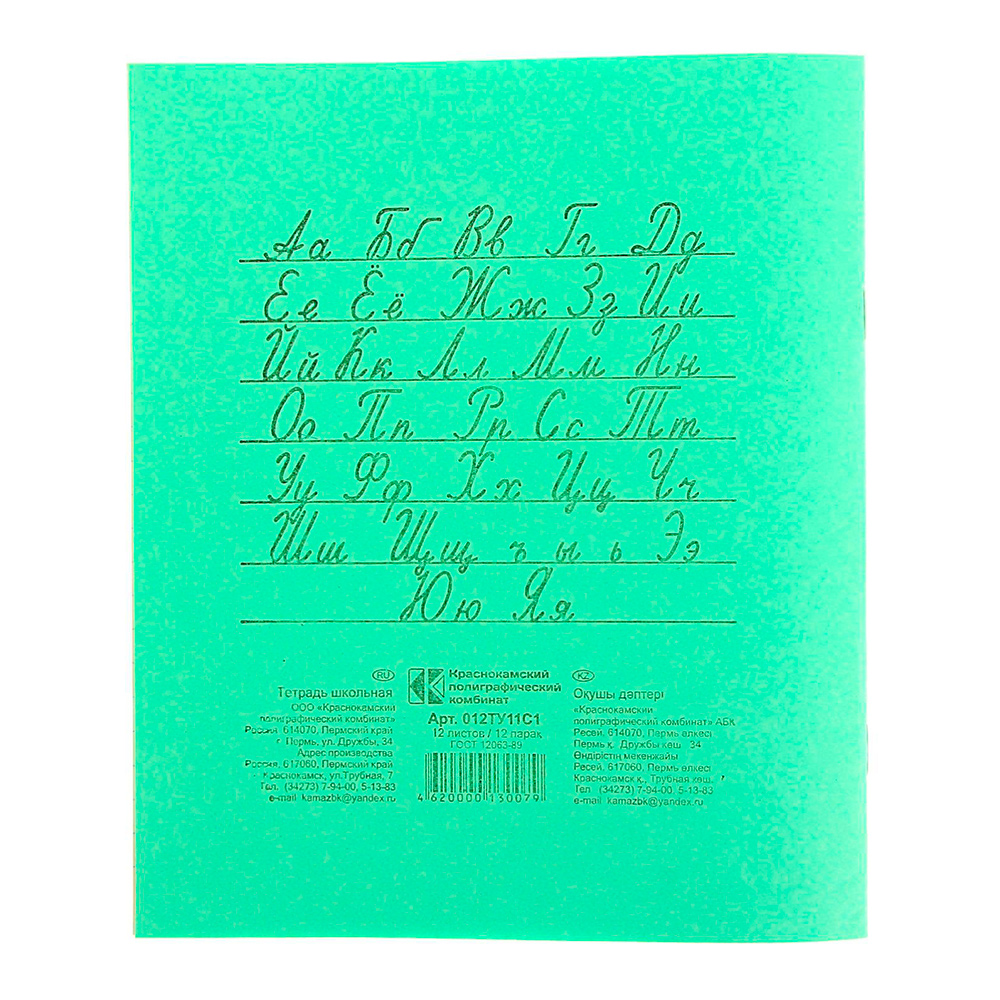 Аа Бб Вв Гг Дд
Ее Ёё Жж Зз Ии
Йй Кк Лл Мм Нн
Оо Пп Рр Сс Тт
Уу Фф Хх Цц Чч
Шш Щщ ъ ы ь Ээ
Юю Яя
RU
Тетрадь школьная
ООО «Краснокамский
полиграфический комбинат»
Россия 614070, Пермский край
г. Пермь, ул. Дружбы, 34
Адрес производства
Россия, 617060, Пермский край
г. Краснокамск, ул.Трубная, 7
Тел. (34273) 7-94-00, 5-13-83
e-mail kamazbk@yandex.ru
Краснокамский
полиграфический
комбинат
Арт. 012ТУ11С1
12 листов / 12 парақ
ГОСТ 12063-89
4 620000 130079
KZ
Оқушы дәптері
«Краснокамский
полиграфический комбинат» АБК
Ресей, 614070, Пермь өлкесі
Пермь қ., Дружбы көш. 34
Өндірістің мекенжайы
Ресей, 617060, Пермь өлкесі
Краснокамск қ., Трубная көш. 7
Тел. (34273) 7-94-00, 5-13-83
e-mail kamazbk@yandex.ru